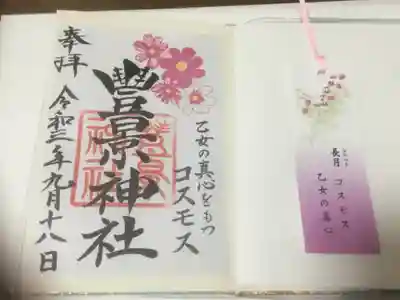 奉拝
豊景神社
乙女の真心をもつ
コスモス
令和三年九月十八日
長月 コスモス
乙女の真心